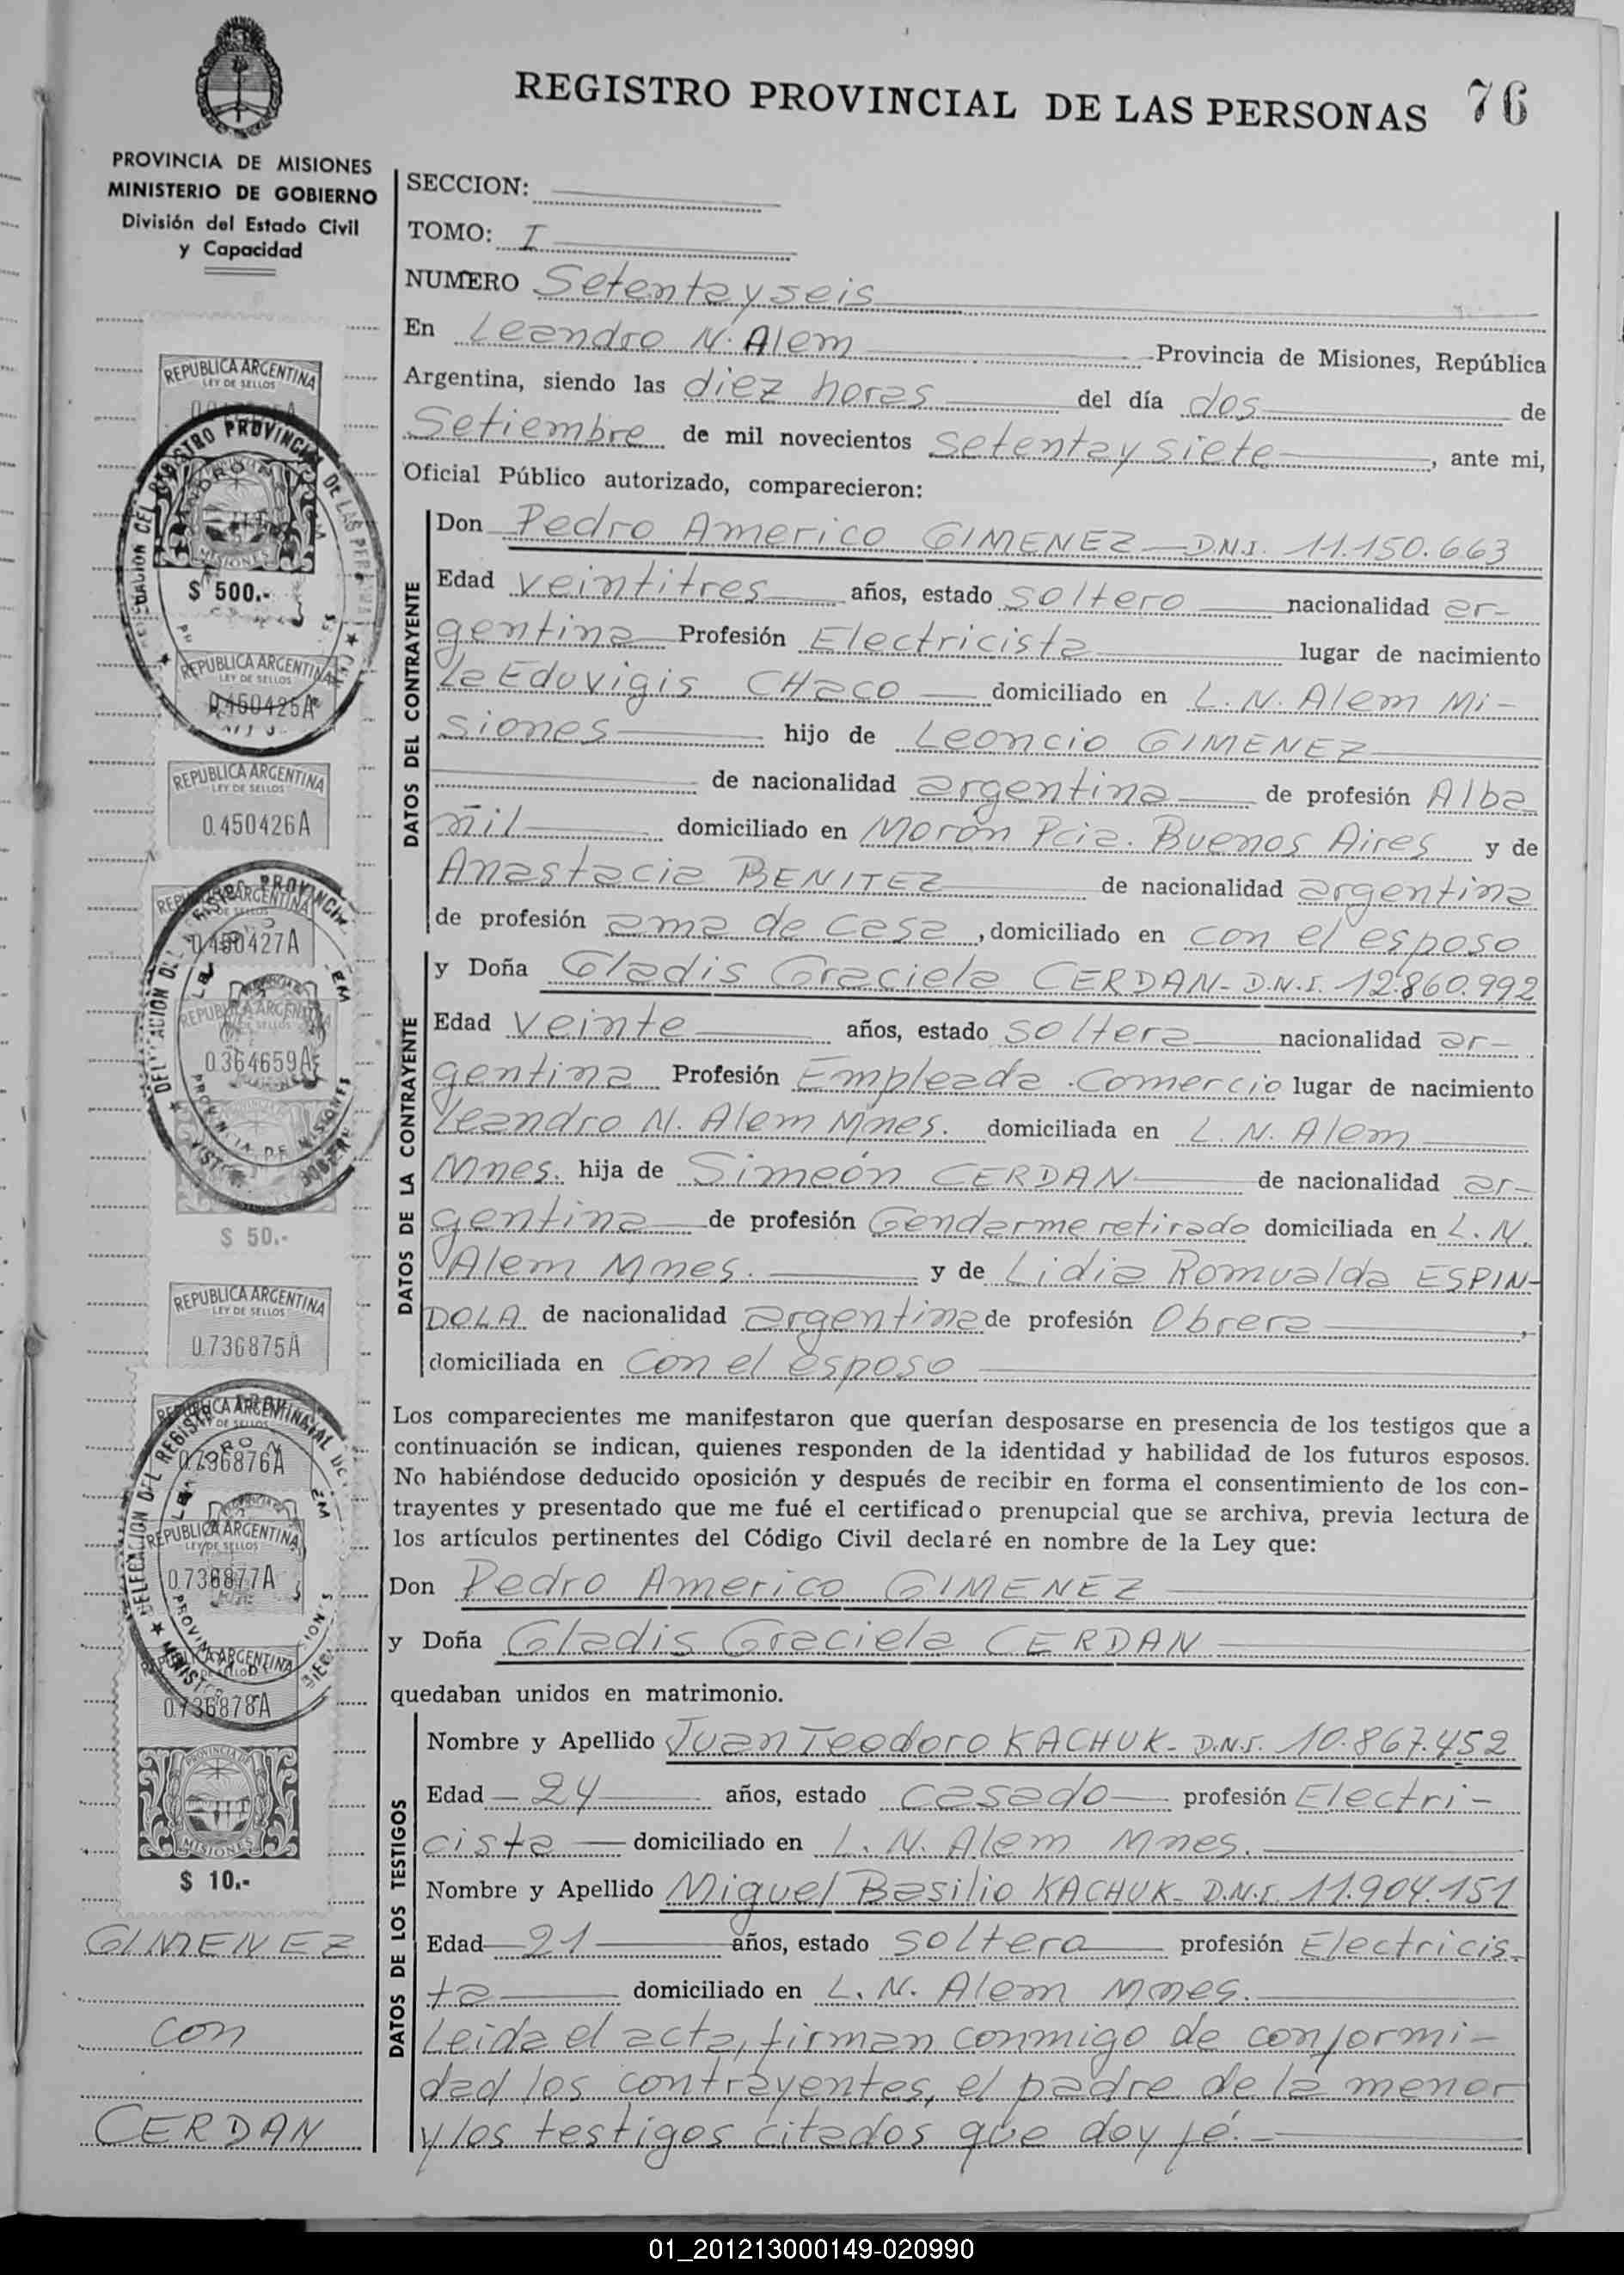 REGISTRO PROVINCIAL DE LAS PERSONAS 76
PROVINCIA DE MISIONES
MINISTERIO DE GOBIERNO
División del Estado Civil
y Capacidad
SECCION:
TOMO: I
NUMERO Setenta y seis
En Leandro N. Alem Provincia de Misiones, República
Argentina, siendo las diez horas del día dos de
Setiembre de mil novecientos setenta y siete, ante mi,
Oficial Público autorizado, comparecieron:
DATOS DEL CONTRAYENTE
Don Pedro Americo GIMENEZ – D.N.I. 11.150.663
Edad veintitres años, estado soltero nacionalidad ar-
gentina Profesión Electricista lugar de nacimiento
La Eduvigis CHaco domiciliado en L. N. Alem Mi-
siones hijo de Leoncio GIMENEZ
de nacionalidad argentina de profesión Alba
ñil domiciliado en Morón Pcia. Buenos Aires y de
Anastacia BENITEZ de nacionalidad argentina
de profesión ama de casa, domiciliado en con el esposo
DATOS DE LA CONTRAYENTE
y Doña Gladis Graciela CERDAN- D.N.I. 12.860.992
Edad veinte años, estado soltera nacionalidad ar-
gentina Profesión Empleada Comercio lugar de nacimiento
Leandro N. Alem Mnes. domiciliada en L. N. Alem
Mnes. hija de Simeón CERDAN de nacionalidad ar-
gentina de profesión Gendarme retirado domiciliada en L. N.
Alem Mnes. y de Lidia Romualda ESPIN-
DOLA de nacionalidad argentina de profesión Obrera,
domiciliada en con el esposo
Los comparecientes me manifestaron que querían desposarse en presencia de los testigos que a
continuación se indican, quienes responden de la identidad y habilidad de los futuros esposos.
No habiéndose deducido oposición y después de recibir en forma el consentimiento de los con-
trayentes y presentado que me fué el certificado prenupcial que se archiva, previa lectura de
los artículos pertinentes del Código Civil declaré en nombre de la Ley que:
Don Pedro Americo GIMENEZ
y Doña Gladis Graciela CERDAN
quedaban unidos en matrimonio.
DATOS DE LOS TESTIGOS
Nombre y Apellido Juan Teodoro KACHUK- D.N.I. 10.867.452
Edad 24 años, estado casado profesión Electri-
cista domiciliado en L. N. Alem Mnes.
Nombre y Apellido Miguel Basilio KACHUK- D.N.I. 11.904.151
Edad 21 años, estado soltero profesión Electricis-
ta domiciliado en L. N. Alem Mnes.
Leida el acta, firman conmigo de conformi-
dad los contrayentes, el padre de la menor
y los testigos citados que doy fé.
REPUBLICA ARGENTINA
LEY DE SELLOS
MISIONES
$ 500.-
REPUBLICA ARGENTINA
LEY DE SELLOS
0.450425A
REPUBLICA ARGENTINA
LEY DE SELLOS
0.450426A
0.450427A
REPUBLICA ARGENTINA
0.364659A
$ 50.-
REPUBLICA ARGENTINA
LEY DE SELLOS
0.736875A
0.736876A
REPUBLICA ARGENTINA
LEY DE SELLOS
0.736877A
0.736878A
PROVINCIA DE
MISIONES
$ 10.-
GIMENEZ
con
CERDAN
01_201213000149-020990